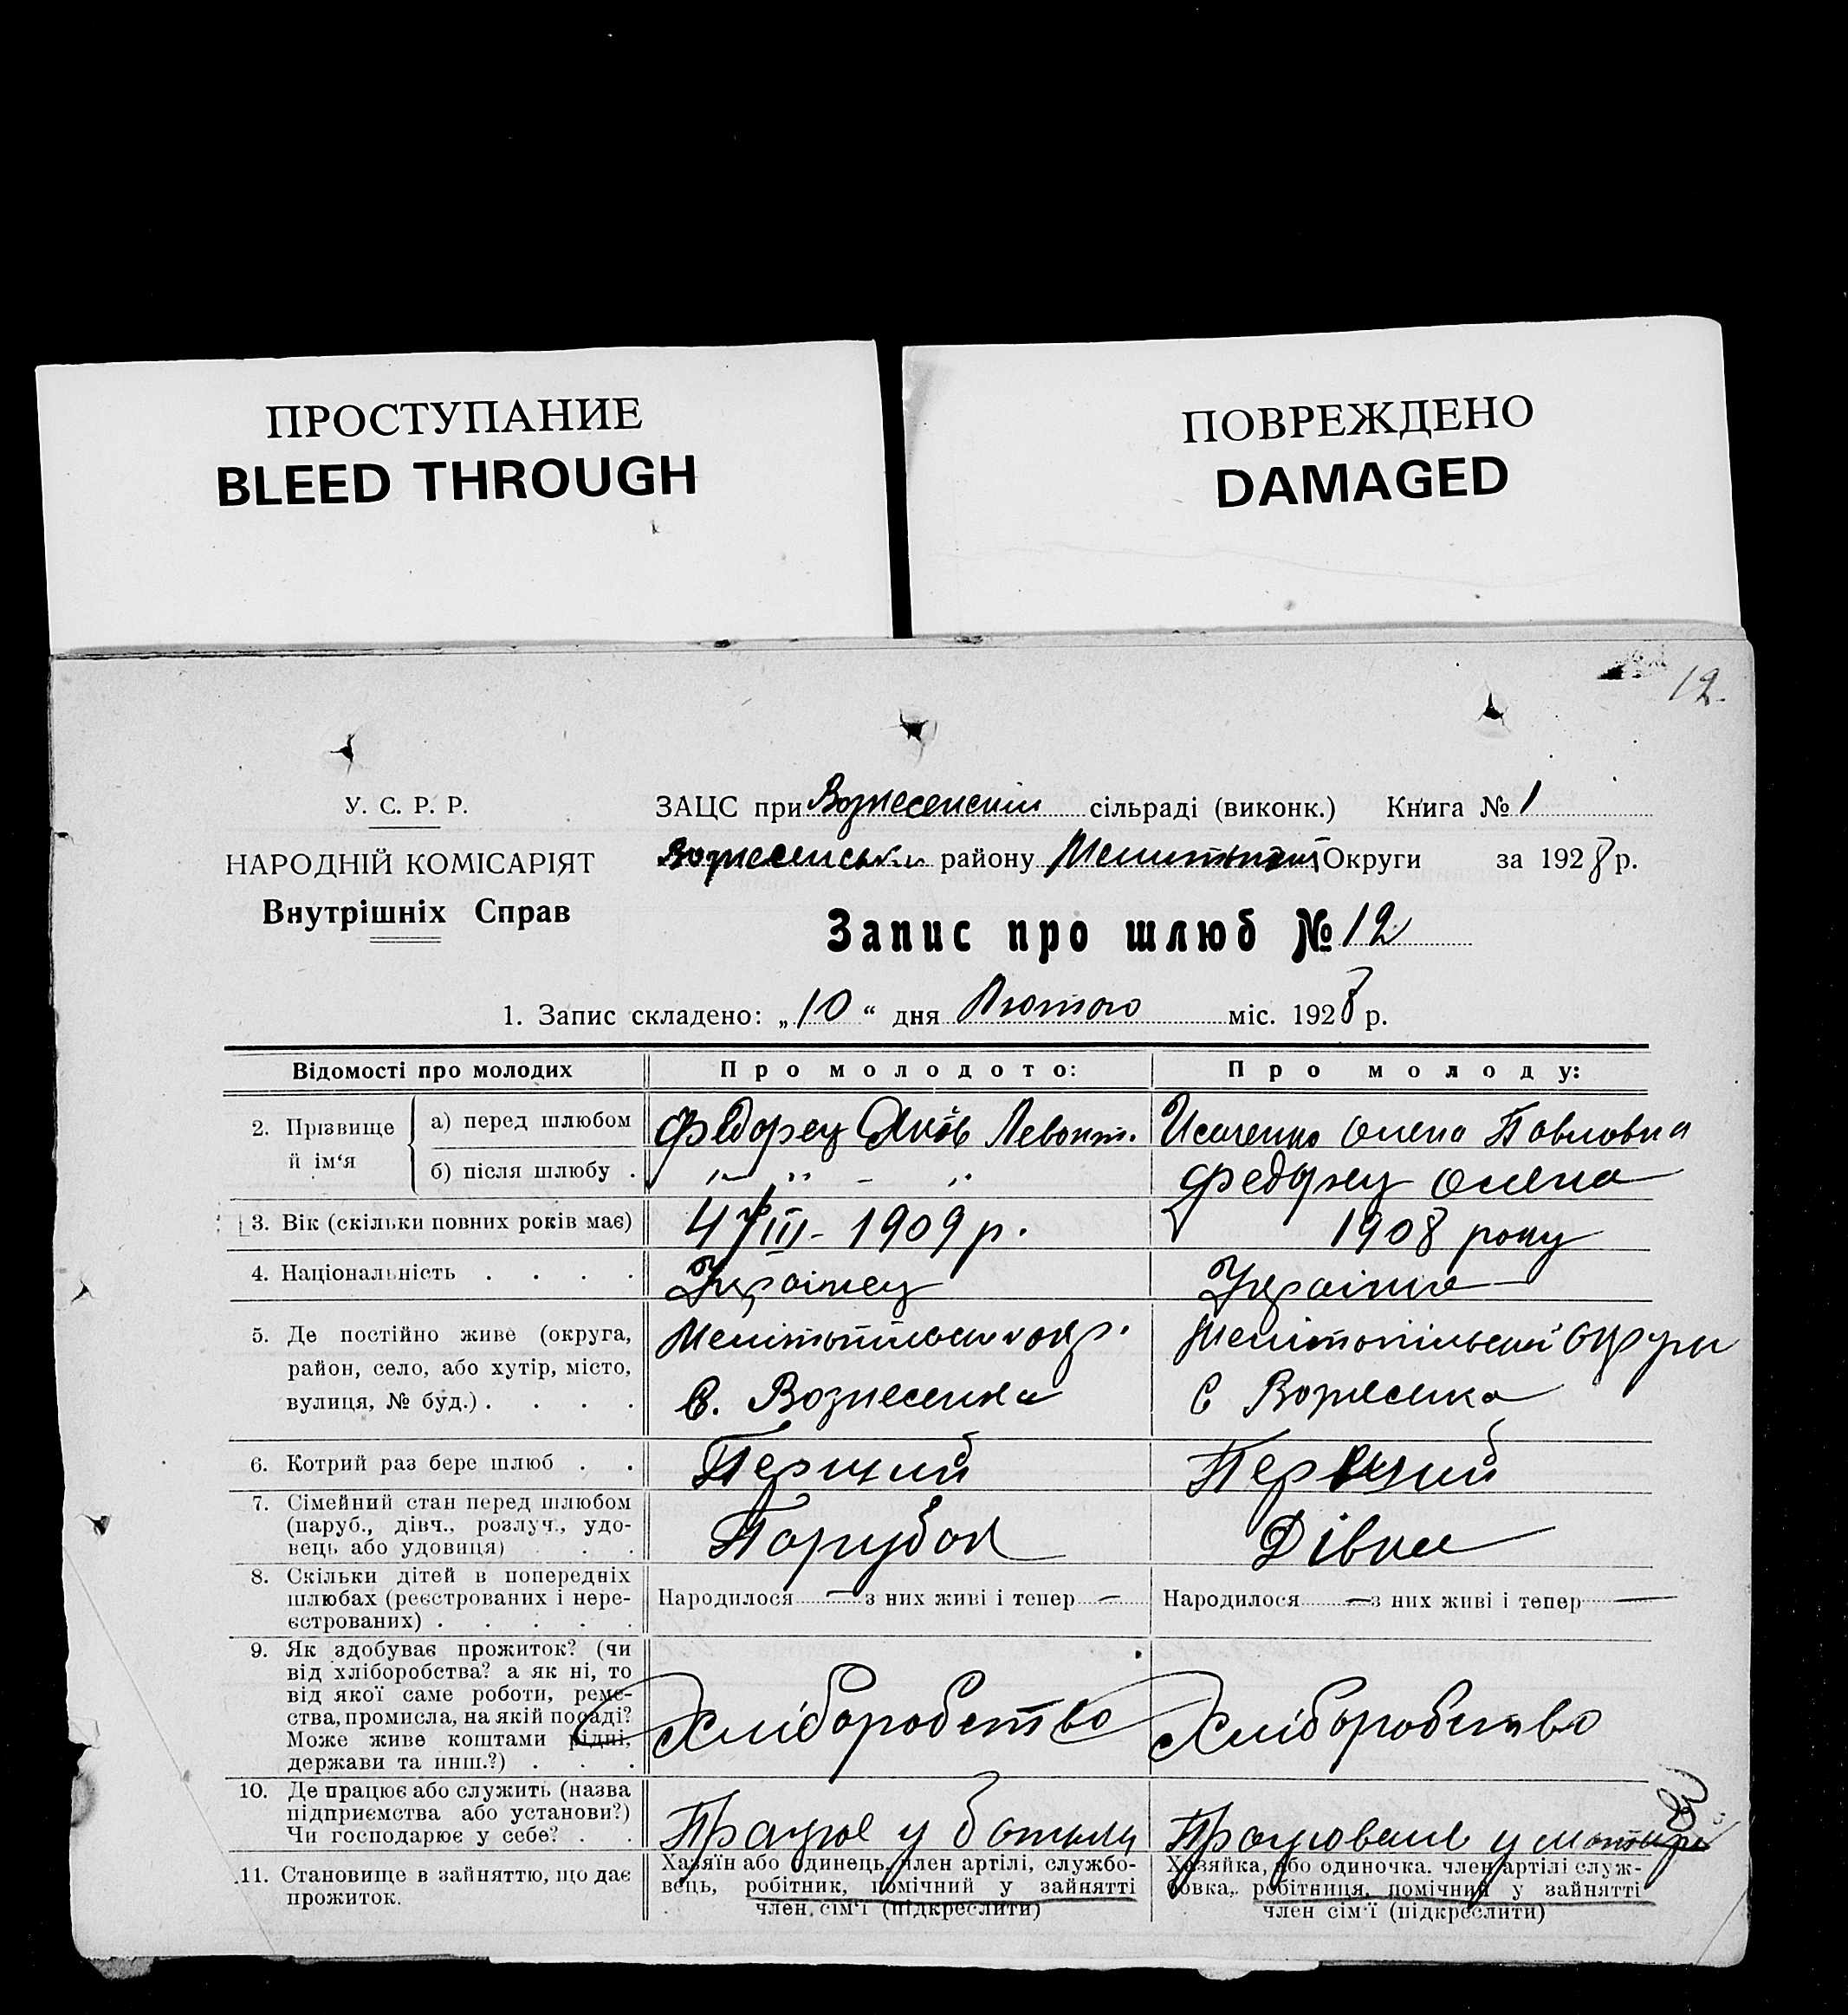 ПРОСТУПАНИЕ
BLEED THROUGH
ПОВРЕЖДЕНО
DAMAGED
12.
У. С. Р. Р.
НАРОДНІЙ КОМІСАРІЯТ
Внутрішніх Справ
ЗАЦС при Вознесенській сільраді (виконк.) Книга № 1
Вознесенськи району Округи за 1928 р.
Запис про шлюб № 12
1. Запис складено: „10“ дня Лютого міс. 1928 р.
Відомості про молодих
Про молодого:
Про молоду:
2. Прізвище й ім‘я
а) перед шлюбом
Федорец Яків Левонт.
Исаченко Олена Павловна
б) після шлюбу .
„ „ - „
Федорец Олена
3. Вік (скільки повних років має)
4/III - 1909 р.
1908 року
4. Національність . . . .
Українец
Українка
5. Де постійно живе (округа,
район, село, або хутір, місто,
вулиця, № буд.) . . . .
окр.
С. Вознесенка
Мелітопільської Округи
С Вознесенка
6. Котрий раз бере шлюб . .
Перший
Перший
7. Сімейний стан перед шлюбом
(паруб., дівч., розлуч., удо-
вець або удовиця) . . .
Парубок
Дівка
8. Скільки дітей в попередніх
шлюбах (реєстрованих і нере-
єстрованих) . . . . .
Народилося — з них живі і тепер —
Народилося — з них живі і тепер —
9. Як здобуває прожиток? (чи
від хліборобства? а як ні, то
від якої саме роботи, реме-
ства, промисла, на якій посаді?
Може живе коштами рідні,
держави та инш.?) . . .
Хліборобство
Хліборобство
10. Де працює або служить (назва
підприємства або установи?)
Чи господарює у себе? . .
Працює у батька
Працювала у матирі
11. Становище в зайняттю, що дає
прожиток.
Хазяїн або одинець, член артілі, службо-
вець, робітник, помічний у зайнятті
член сім‘ї (підкреслити)
Хазяйка, або одиночка. член артілі служ-
бовка, робітниця, помічний у зайнятті
член сім‘ї (підкреслити)